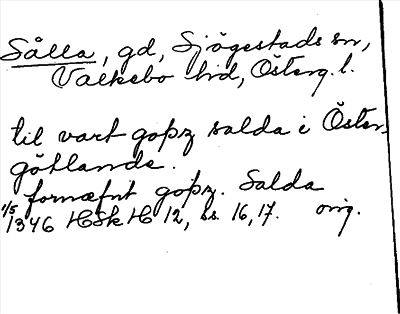 Sålla, gd, Sjögestads sn,
Valkebo hd, Österg. l.
til vart goþz salda i Öster-
götlande.
fornæfnt goþz. Salda
1/5 1346 HSkH 12, ss. 16, 17. orig.